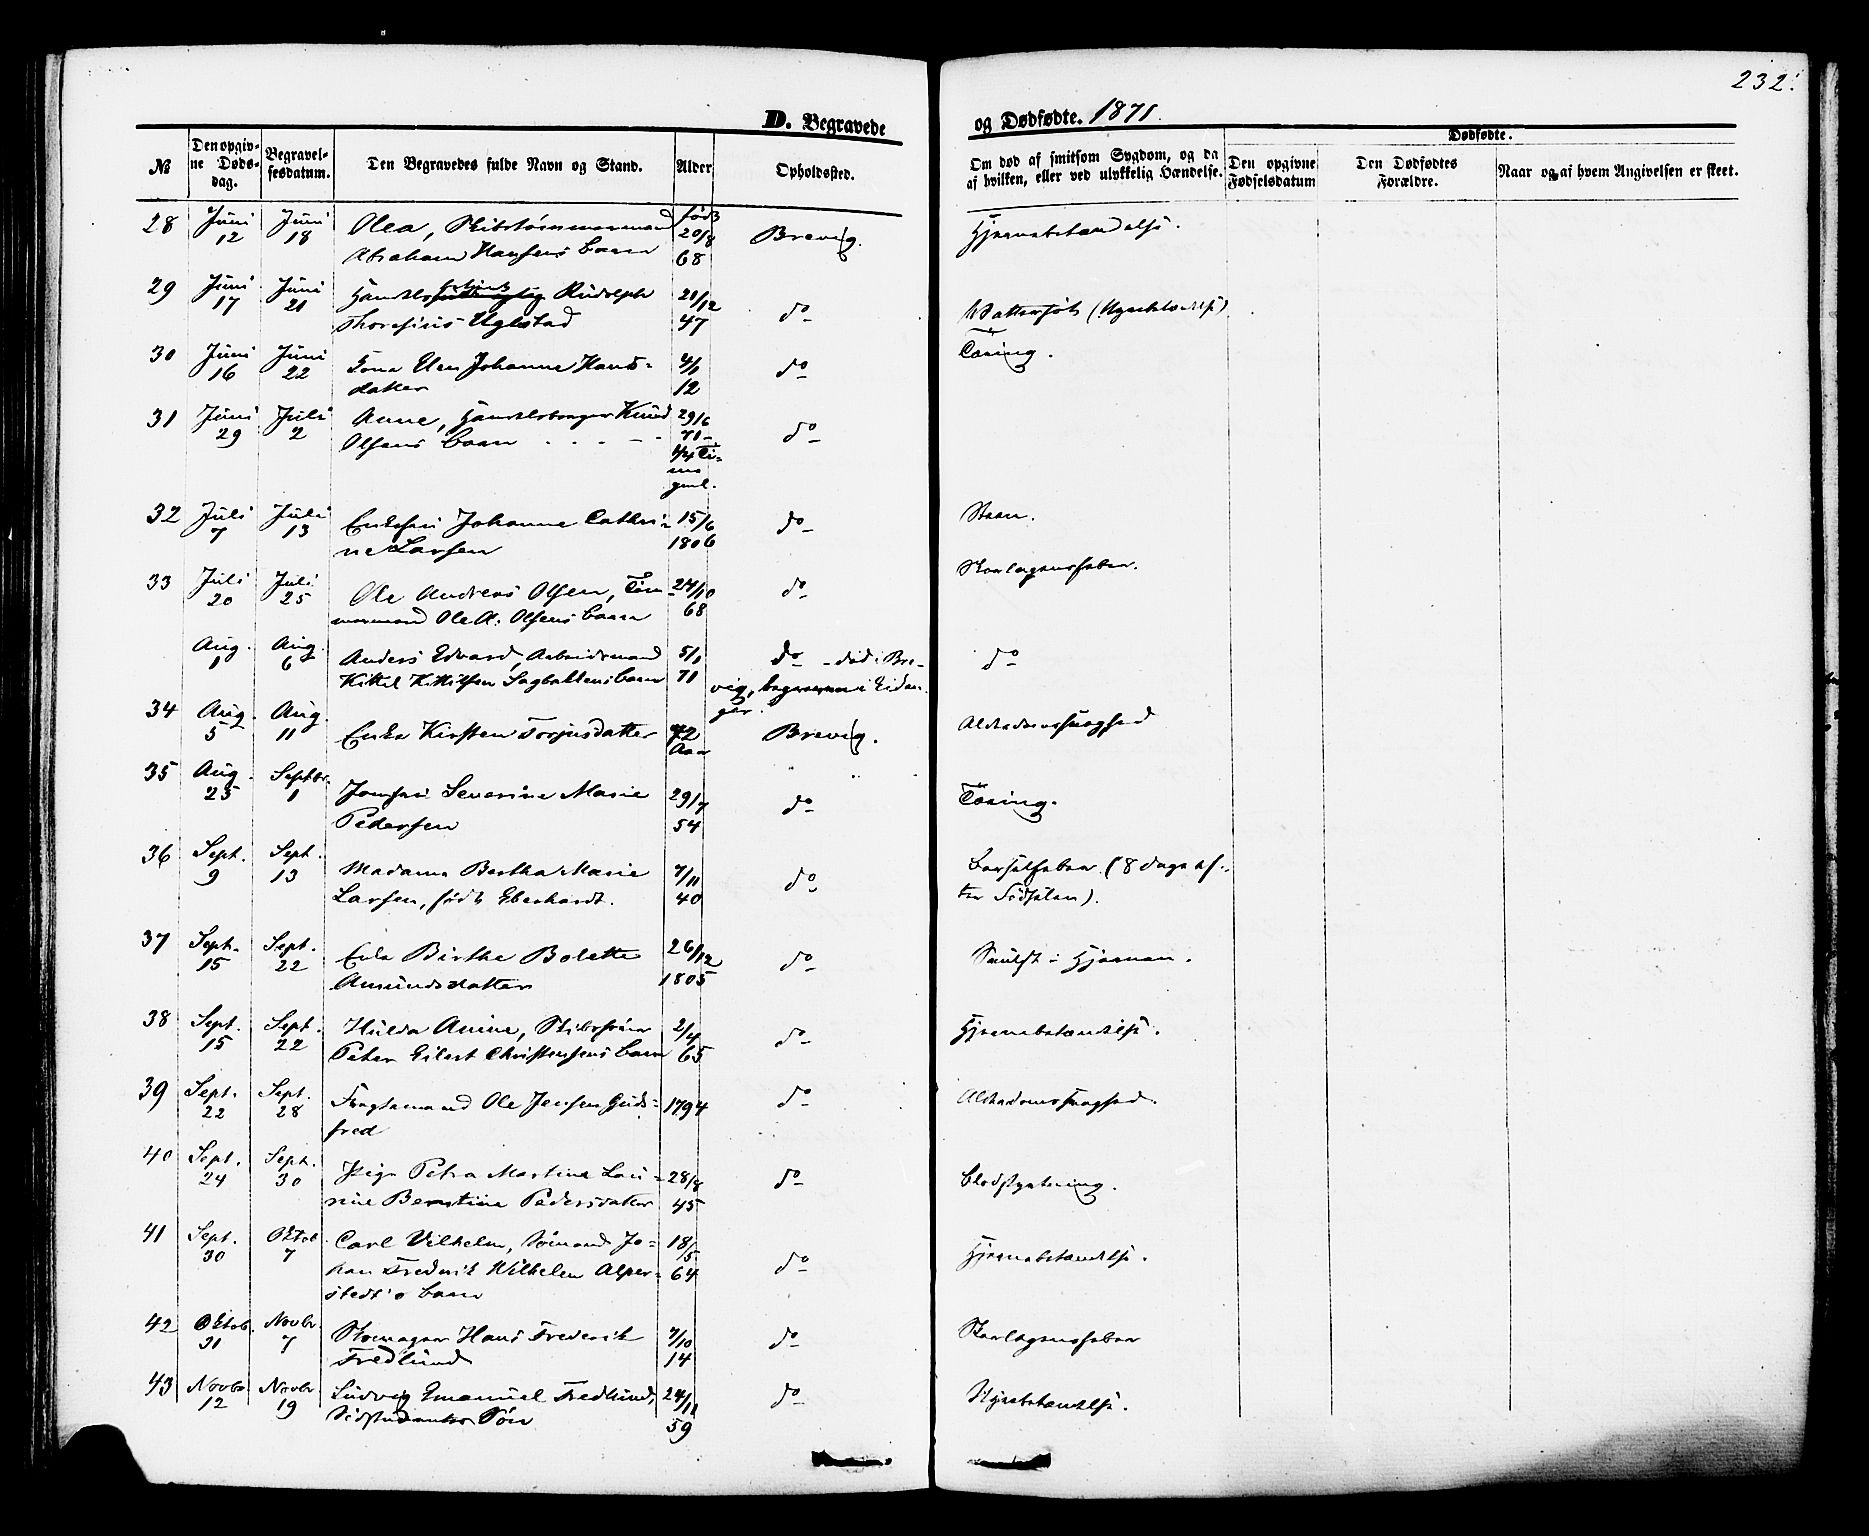 232.
D. Begravede og Dødfødte. 1871.
№
Den opgivne Døds-dag.
Begravelsesdatum.
Den Begravedes fulde Navn og Stand.
Alder
Opholdssted.
Om død af smitsom Sygdom, og da af hvilken, eller ved ulykkelig Hændelse.
Dødfødte.
Den opgivne Fødselsdatum
Den Dødfødtes Forældre.
Naar og af hvem Angivelsen er skeet.
28 Juni 12 Juni 18 Olea, Skibstømmermand født 20/8 Brevig. Hjernebetændelse.
Abraham Hansens Barn 68
29 Juni 17 Juni 21 Rudolph 21/12 do Vattersot (Nyrebetændelse)
Thoresius Uglstad 47
30 Juni 16 Juni 22 Elen Johanne Hans- 4/1 do Tæring.
datter 12
31 Juni 29 Juli 2 Anne, Handelsborger Knud 29/6 do
Olsens Barn 71
1/4 Ti-
me
gml.
32 Juli 7 Juli 13 Enkefru Johanne Cathri- 15/6 do Steen.
ne Larsen 1806
33 Juli 20 Juli 25 Ole Andreas Olsen, Tøm- 24/10 do Skarlagensfeber.
mermand Ole A. Olsens Barn 68
Aug. 1 Aug. 6 Anders Edvard, Arbeidsmand 5/1 do - død i Bre- do
Kittel Kittilsen Sagbakkens Barn 71 vig, begraven i Eidan-
ger.
34 Aug. 5 Aug. 11 Enke Kirsten Torjusdatter 72 Aar Brevig. Alderdomssvaghed
35 Aug. 25 Septbr. 1 Jomfru Severine Marie 29/7 do Tæring.
Pedersen 54
36 Sept. 9 Sept. 13 Madame Bertha Marie 7/11 do Barselfeber (8 dage ef-
Larsen, født Eberhardt. 40 ter Fødselen).
37 Sept. 15 Sept. 22 Enke Birthe Bolette 26/12 do Svulst i Hjernen.
Amundsdatter 1805
38 Sept. 15 Sept. 22 Hulda Anine, Skibsfører 2/4 do Hjernebetændelse.
Peter Eilert Christensens Barn 65
39 Sept. 22 Sept. 28 Fragtemand Ole Jensen Gude- 1794 do Alderdomssvaghed.
fred
40 Sept. 24 Sept. 30 Pige Petra Martine Lau- 28/8 do Blodspytning.
rine Berntine Pedersdatter 45
41 Sept. 30 Oktob. 7 Carl Vilhelm, Sømand Jo- 18/5 do Hjernebetændelse.
han Frederik Wilhelm Alper- 64
stedt's Barn
42 Oktob. 31 Novbr. 7 Skomager Hans Frederik 7/10 do Skarlagensfeber
Fredlund 14
43 Novbr. 12 Novbr. 19 Ludvig Emanuel Fredlund, 24/11 do Nyrebetændelse.
Søn 59